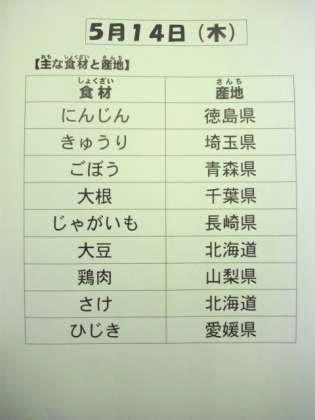 5月14日(木)
【主な食材と産地】
食材 産地
にんじん 徳島県
きゅうり 埼玉県
ごぼう 青森県
大根 千葉県
じゃがいも 長崎県
大豆 北海道
鶏肉 山梨県
さけ 北海道
ひじき 愛媛県